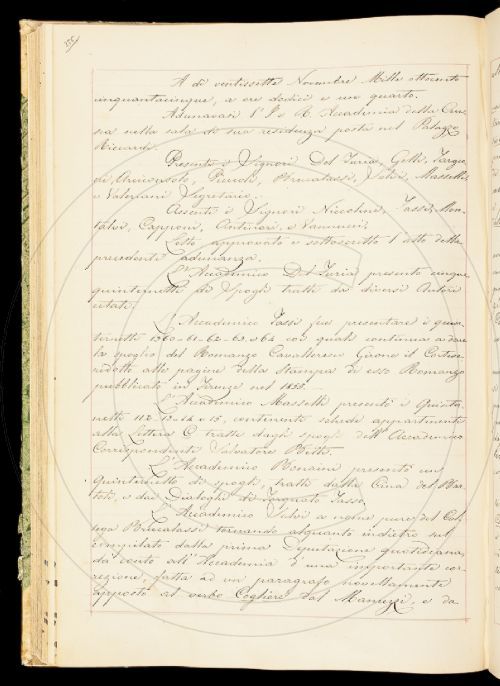 A dì ventisette Novembre Mille ottocento
cinquantacinque, a ore dodici e uno quarto.
Adunavasi l'I. e R. Accademia della Cru-
sca nella sala di sua residenza posta nel Palazzo
Riccardi.
Presenti i Signori Del Furia, Gelli, Targio-
ni, Arcangeli, Bianchi, Brucalassi, Salvi, Masselli,
e Valeriani Segretario.
Assenti i Signori Niccolini, Tassi, Mon-
talvi, Capponi, Antinori, e Vannucci.
Letto approvato e sottoscritto l'atto della
precedente adunanza.
L'Accademico Del Furia presentò cinque
quinternetti di Spogli tratti da diversi Autori
citati.
L'Accademico Tassi fece presentare i quin-
ternetti 1360-61-62-63 e 64 coi quali continua a dare
lo spoglio del Romanzo Cavalleresco Girone il Cortese
ridotto alle pagine della stampa di esso Romanzo
pubblicato in Firenze nel 1855.—
L'Accademico Masselli presentò i Quinter-
netti 112-13-14 e 15, contenenti schede appartenenti
alla Lettera C tratte dagli spogli dell'Accademico
Corrispondente Salvatore Betti.
L'Accademico Bencini presentò un
Quinternetto di spogli, tratti dalla Cina del Bar-
toli, e dai Dialoghi di Torquato Tasso.
L'Accademico Salvi a nome pure del Col-
lega Brucalassi tornando alquanto indietro sul
compilato dalla prima Deputazione quotidiana,
dà conto all'Accademia d'una importante cor-
rezione, fatta ad un paragrafo novellamente
apposto al verbo Cogliere dal Manuzzi, e da